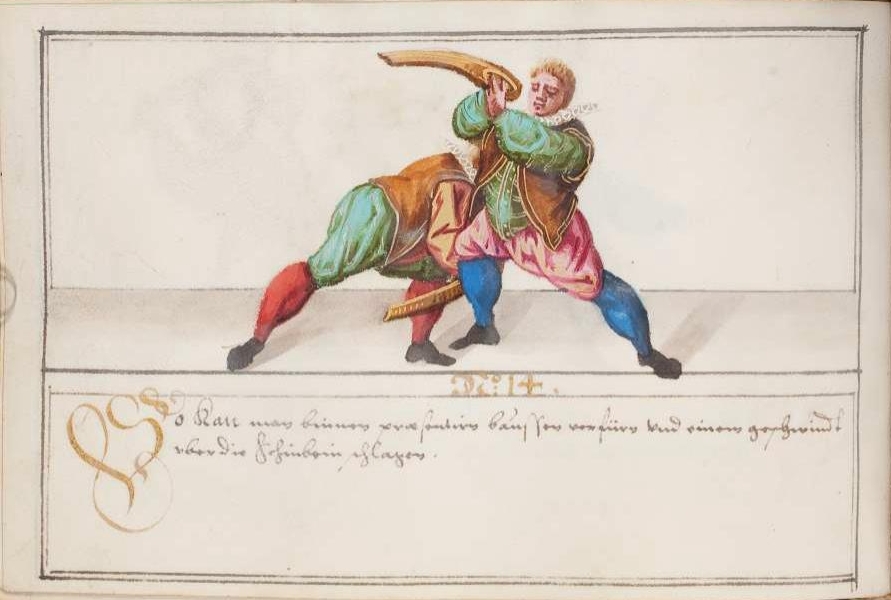 No: 14.
So Kan man binnen præsentirn baussen verfürn vnd einem geschwindt
vber die Schinbein schlagen.